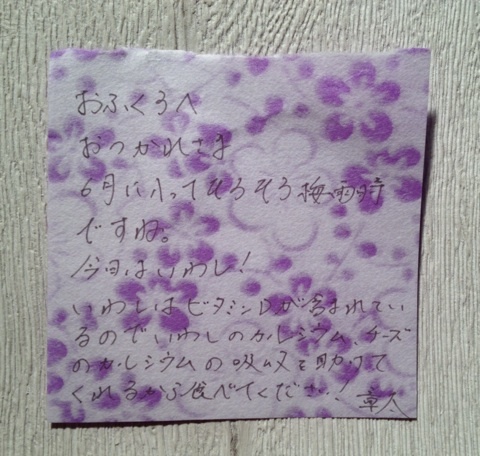 おふくろへ
おつかれさま
6月に入ってそろそろ梅雨時
ですね。
今日はいわし!
いわしはビタミンDが含まれてい
るのでいわしのカルシウム、チーズ
のカルシウムの吸収を助けて
くれるから食べてください!